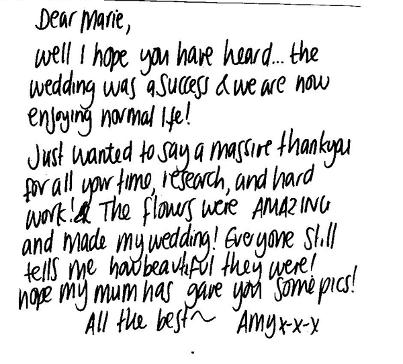 Dear Marie,
Well I hope you have heard... the
wedding was a success & we are now
enjoying normal life!
Just wanted to say a massive thankyou
for all your time, research, and hard
work! The flowers were AMAZING
and made my wedding! Everyone still
tells me how beautiful they were!
hope my mum has gave you some pics!
All the best~ Amy x-x-x